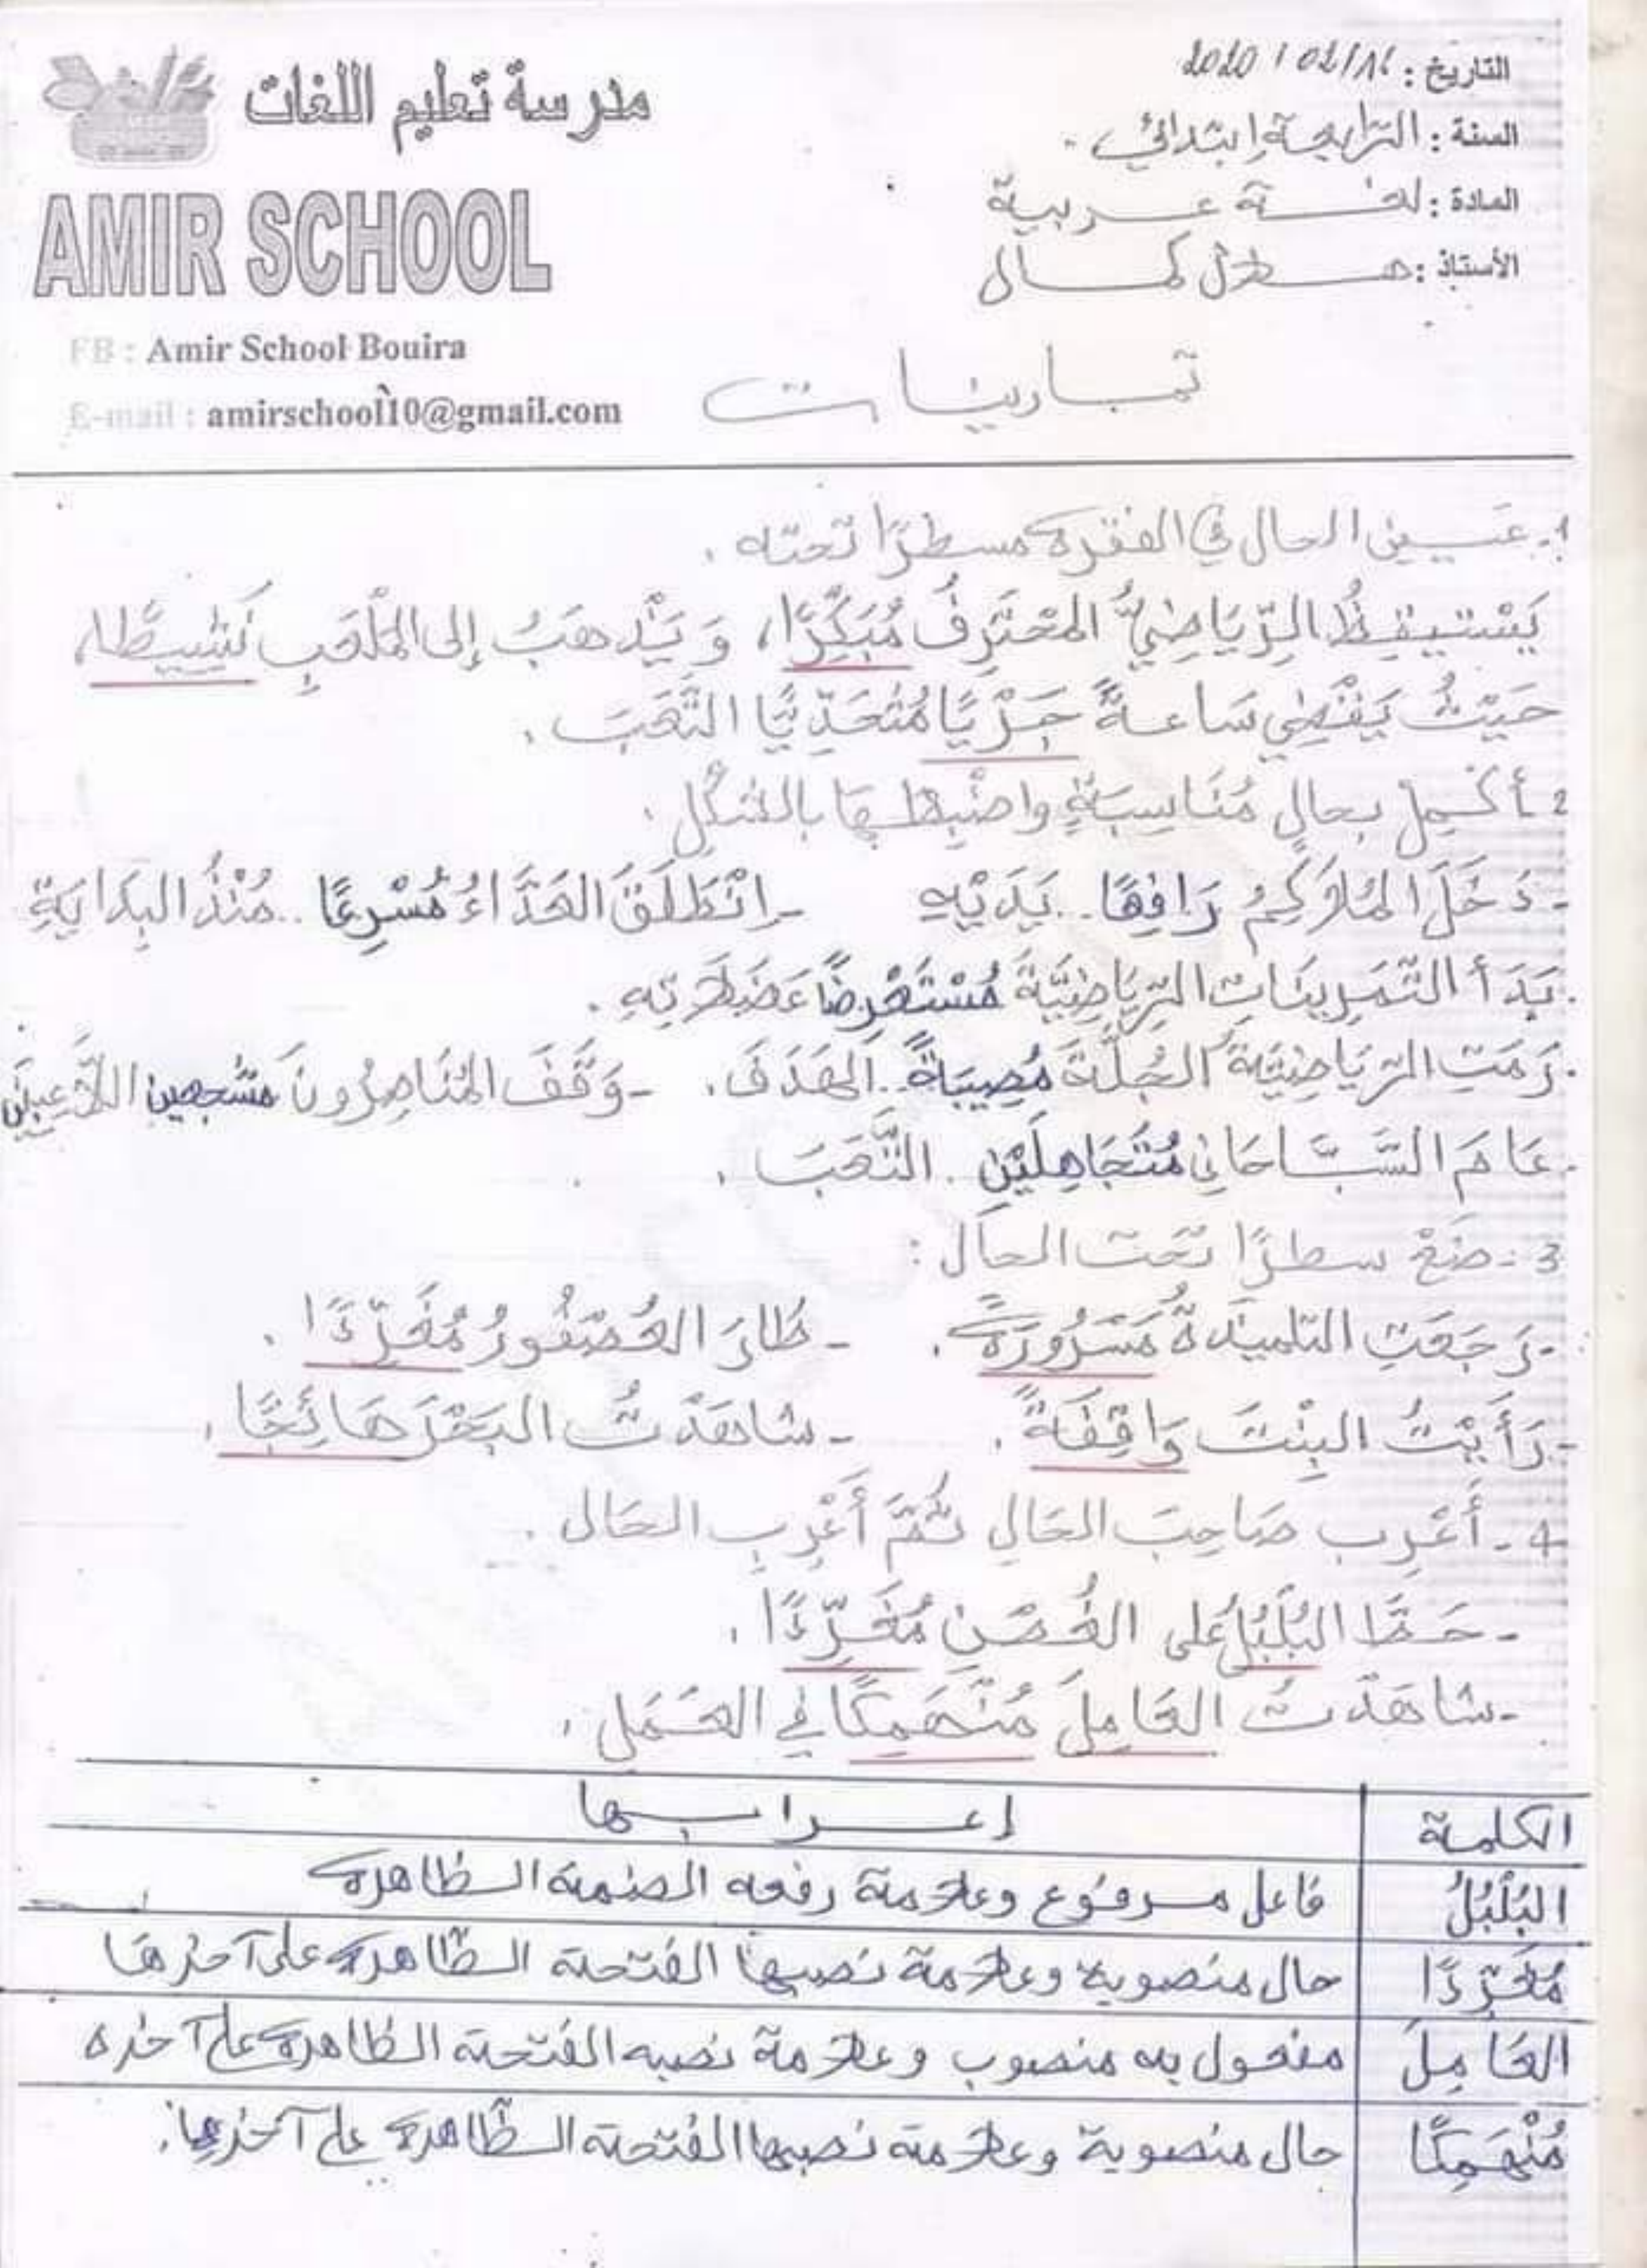 التاريخ : 2020 / 02/16
السنة : الرابعة إبتدائي.
المادة : لغة عربية
الأستاذ : هلال كمال
مدرسة تعليم اللغات
AMIR SCHOOL
FB : Amir School Bouira
E-mail : amirschool10@gmail.com
تمارينات
1- عين الحال في الفقرة مسطرًا تحته.
يَسْتيقِظُ الرِّيَاضِيُّ المحْتَرِفُ مُبَكِّرًا، وَ يَذْهَبُ إلى المَلْعَبِ نَشِيطًا،
حَيْثُ يَقْضِي سَاعةً جَرْيًا مُتَحَدِّيًا التَّعَبَ.
2 - أكْمِلْ بحالٍ مُنَاسِبَةٍ واضْبِطها بالشَّكْلِ.
- دَخَلَ المُلَاكِمُ رَافِعًا .. يَدَيْهِ - اِنْطَلَقَ العَدَّاءُ مُسْرِعًا .. مُنْذُ البِدَايَةِ
. بَدَأ التَّمَرِينَاتِ الرِّيَاضِيَّةَ مُسْتَعْرِضًا عَضَلَاتِهِ.
. رَمَتِ الرِّيَاضِيَّةُ الجُلَّةَ مُصِيبَةً .. الهَدَفَ. - وَقَفَ المُنَاصِرُونَ مشجعين اللَّاعِبِينَ
. عَامَ السَّبَّاحَانِ مُتَجَاهِلَيْنِ . التَّعَبَ.
3 - ضَعْ سطرًا تَحْتَ الحال :
- رَجَعَتِ التلميذَةُ مَسْرُورَةً. - طَارَ العُصْفُورُ مُغَرِّدًا.
- رَأَيْتُ البِنْتَ وَاقِفَةً. - شاهَدْتُ البَحْرَ هَائِجًا.
4 - أَعْرِب صَاحِبَ الحَالِ ثُمَّ أَعْرِبِ الحَال.
- حَطَّ البُلْبُلُ على الغُصْنِ مُغَرِّدًا.
- شاهَدْتُ العَامِلَ مُنْهَمِكًا في العَمَلِ.
الكلمة إعرابها
البُلْبُلُ فاعل مرفوع وعلامة رفعه الضمة الظاهرة
مُغَرِّدًا حال منصوبة وعلامة نصبها الفتحة الظّاهرة على آخرها
العَامِلَ مفعول به منصوب وعلامة نصبه الفتحة الظاهرة على آخره
مُنْهَمِكًا حال منصوبة وعلامة نصبها الفتحة الظّاهرة على آخرها.